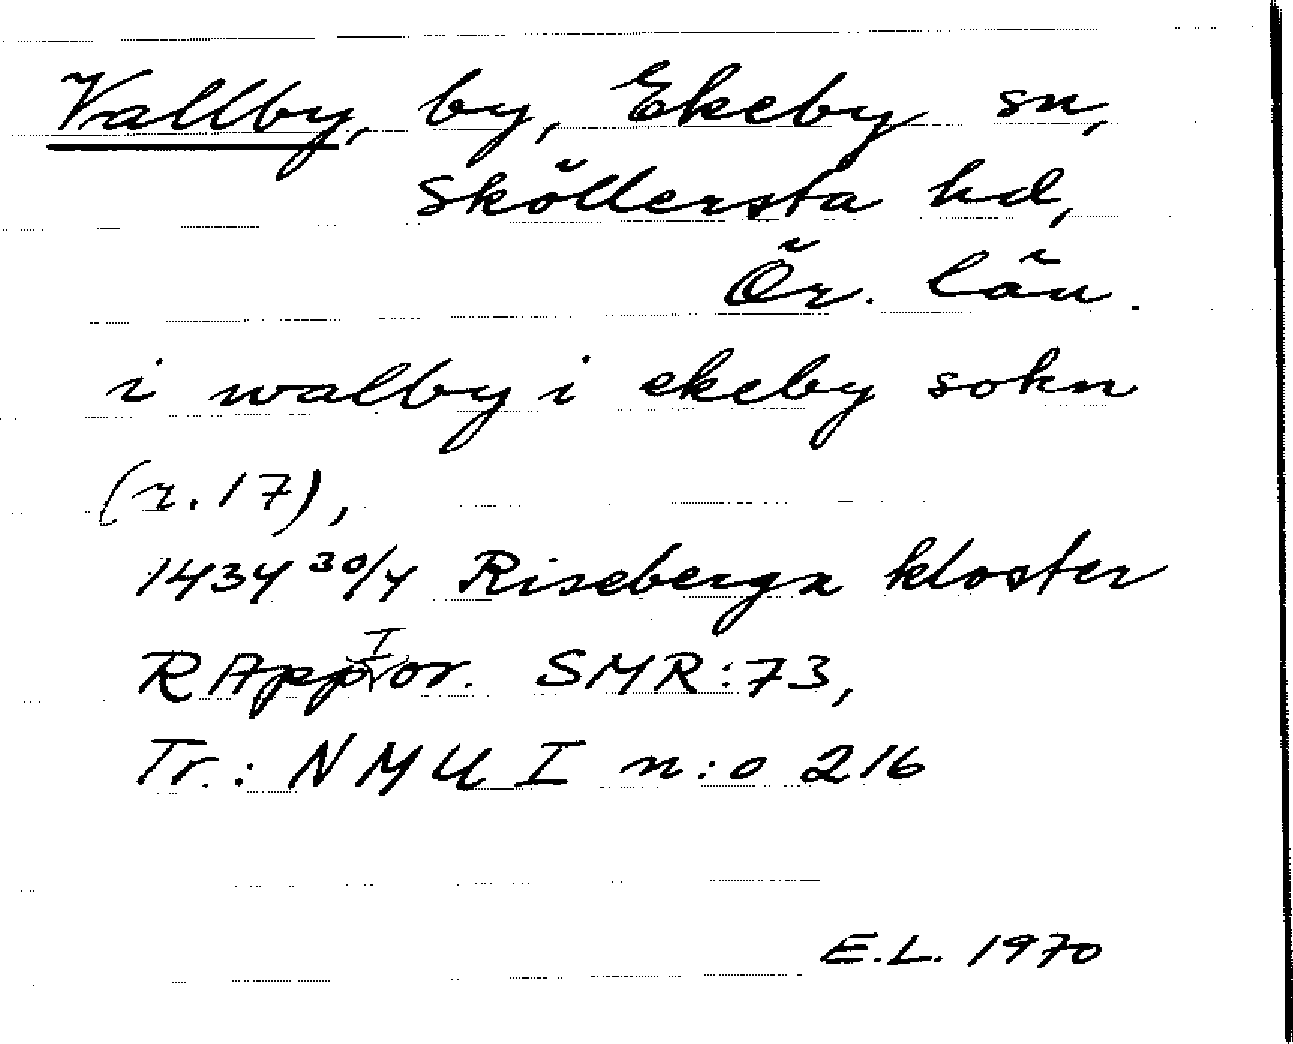 Vallby, by, Ekeby sn,
Sköllersta hd,
Ör. län.
i walby i ekeby sokn
(r. 17),
1434 30/4 Riseberga kloster
RAppr I or. SMR:73,
Tr.: NMU I n:o 216
E.L. 1970